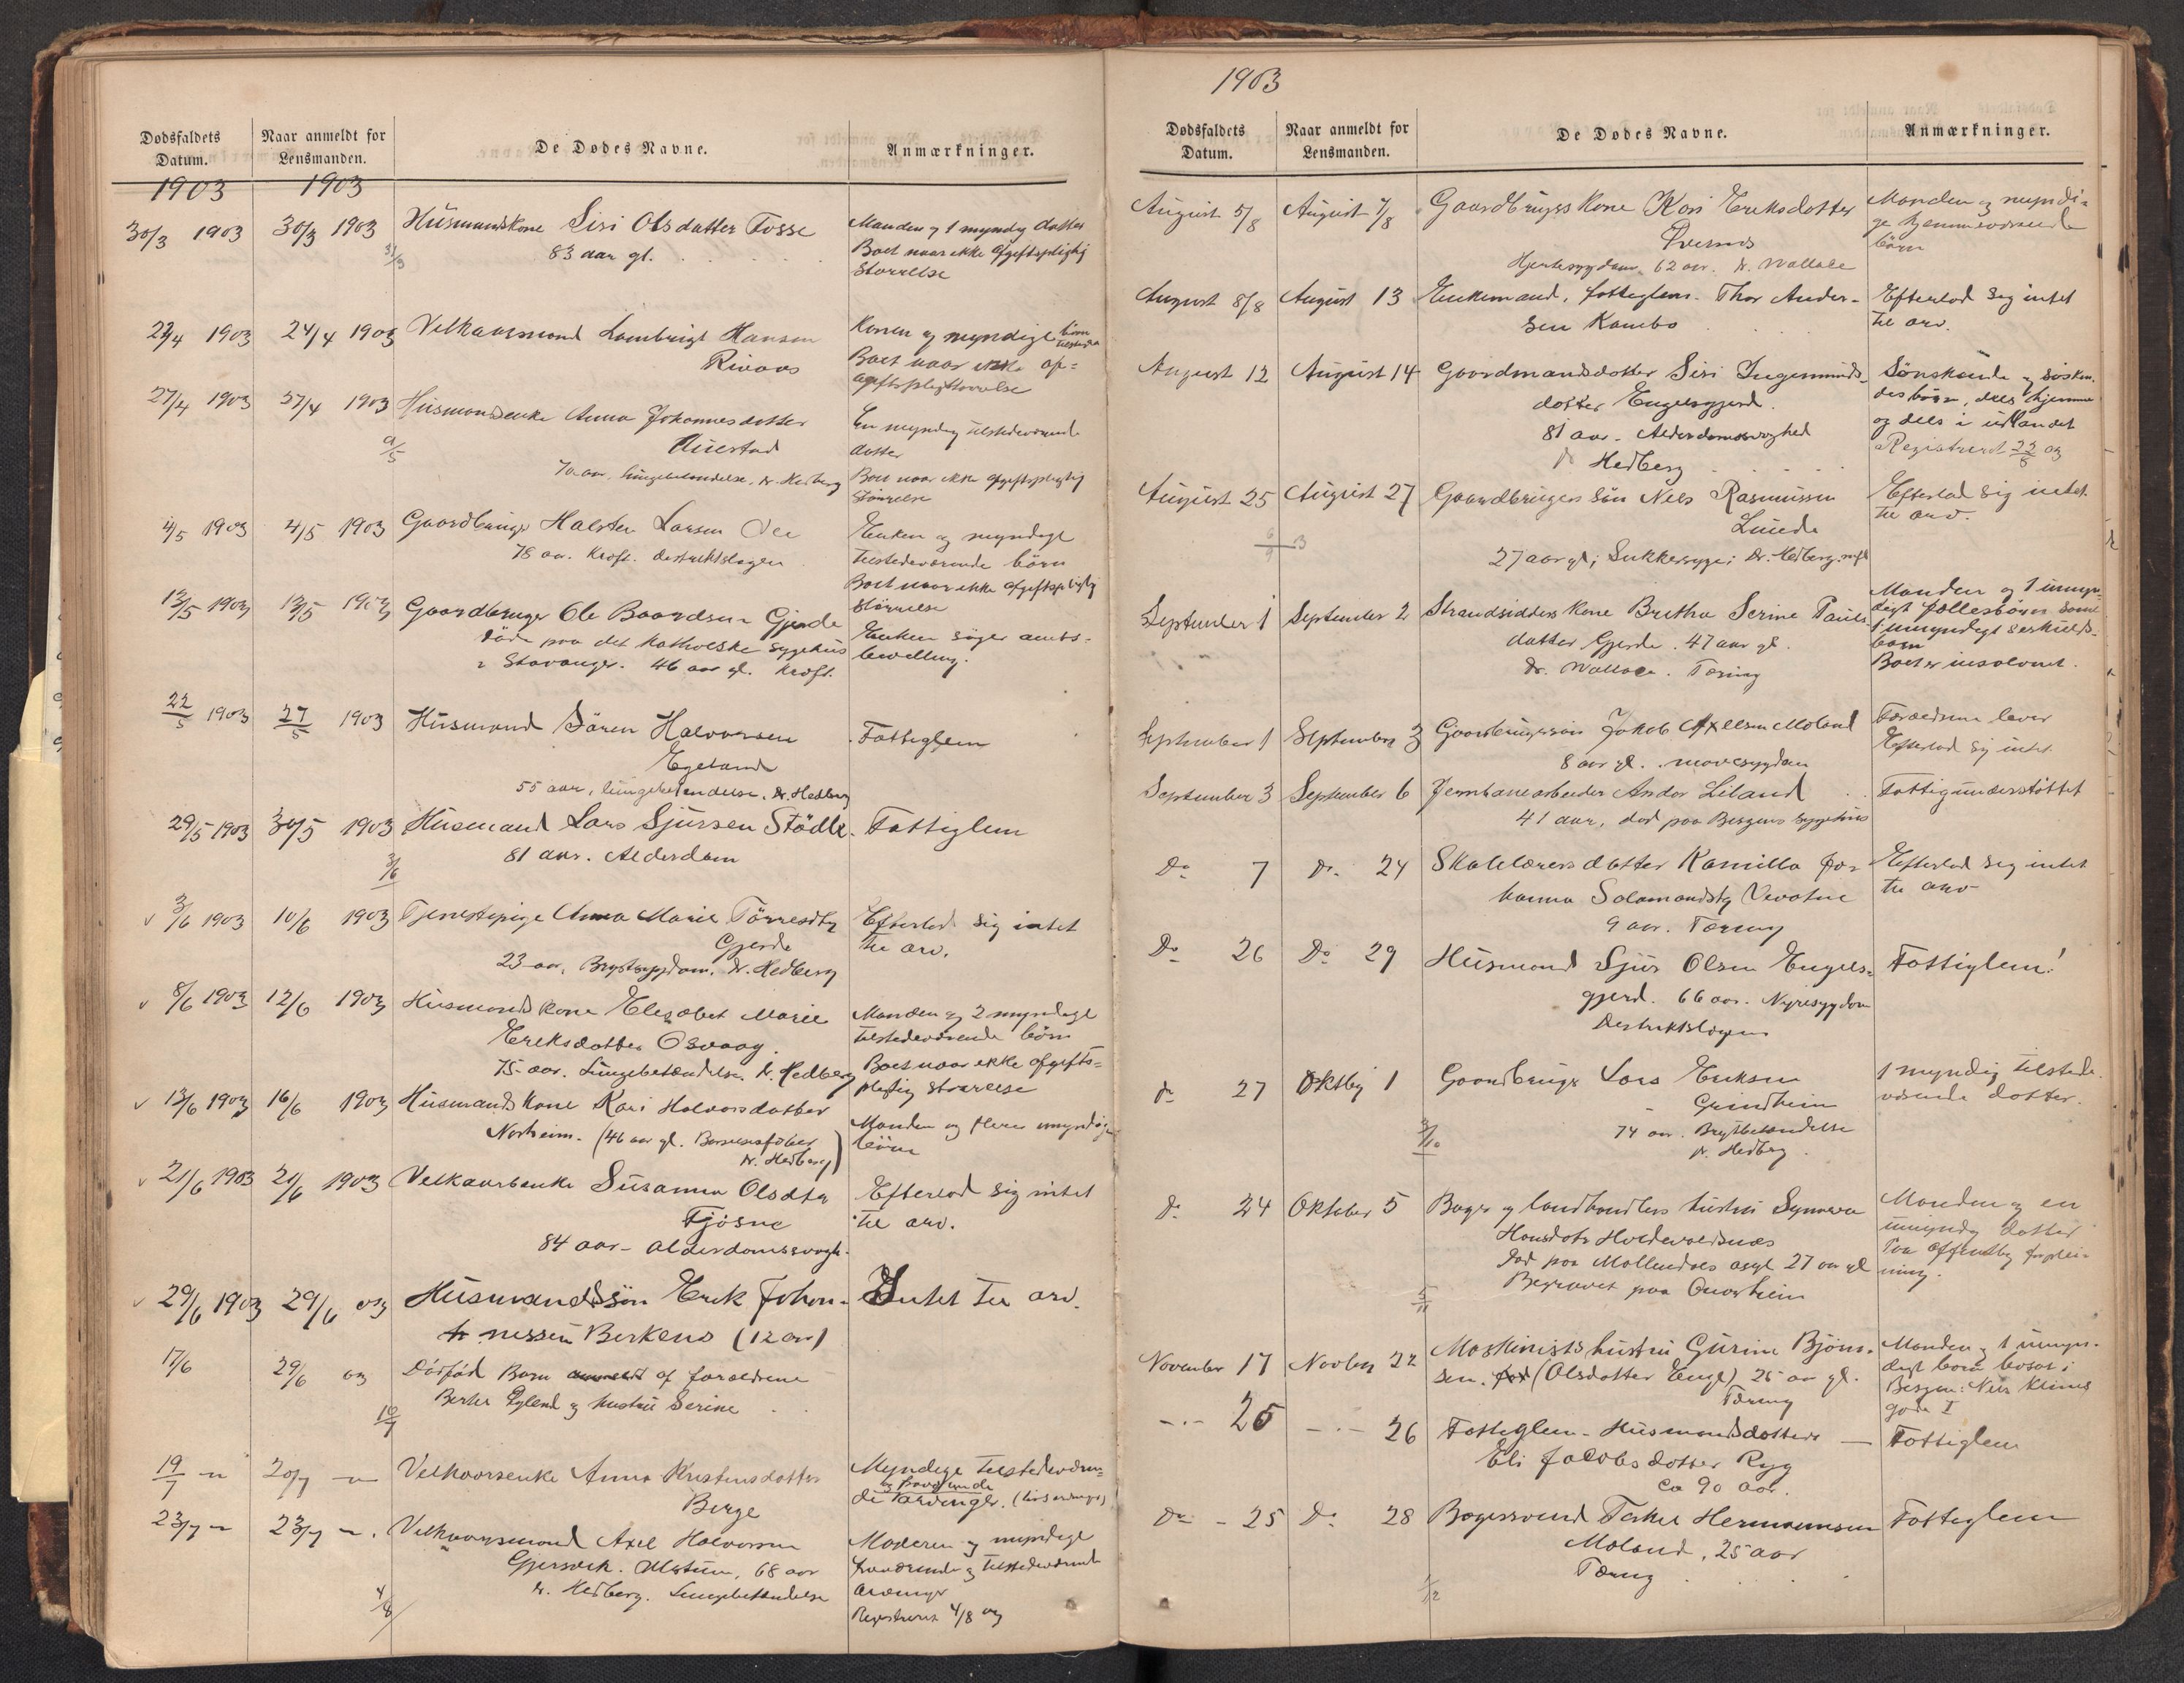 Dødsfaldets Datum.
Naar anmeldt for Lensmanden.
De Dødes Navne.
Anmærkninger.
1903 1903
30/3 1903 30/3 1903 Husmandskone Siri Olsdatter Fosse Manden og 1 myndig datter
31/3 83 aar gl. Boet naar ikke afgiftspligtig
størrelse
24/4 1903 Velkaarsmand Lambrigt Hansen Konen og myndige børn
Boet naar ikke af=
giftspligtstørrelse
27/4 1903 27/4 1903 Husmandsenke Anna Johannesdatter En myndig tilstedeværende
9/5 datter
70 aar, lungebetændelse, dr. Hedberg Boet naar ikke afgiftspligtig
størrelse
4/5 1903 4/5 1903 Gaardbruger Halsten Larsen Enken og myndige
78 aar. Kræft. distriktslægen tilstedeværende børn
Boet naar ikke afgiftspligtig
størrelse
13/5 1903 13/5 1903 Gaardbruger Ole Baardsen Gjerde Enken søger amts-
død paa det katholske sygehus bevilling.
i Stavanger. 46 aar gl. Kræft.
22/5 1903 27/5 1903 Husmand Sören Halvorsen Fattiglem
Egeland
55 aar, lungebetændelse, dr. Hedberg
29/5 1903 30/5 1903 Husmand Lars Sjursen Stödle Fattiglem
3/6 81 aar. Alderdom
v 3/6 1903 10/6 1903 Tjenestepige Anna Marie Törresdtr Efterlod sig intet
Gjerde til arv.
23 aar, Brystsygdom, dr. Hedberg
v 8/6 1903 12/6 1903 Husmandskone Elisabet Marie Manden og 2 myndige
Eriksdatter Osvaag. tilstedeværende börn
75 aar. Lungebetændelse. dr. Hedberg Boet naar ikke afgifts=
pligtig størrelse
v 13/6 1903 16/6 1903 Husmandskone Kari Halvorsdatter Manden og flere umyndige
Norheim. (46 aar gl. Barselsfeber börn
dr. Hedberg)
v 21/6 1903 21/6 1903 Velkaarsenke Susanna Olsdtr Efterlod sig intet
Tjösne til arv.
84 aar - alderdomssvagh.
v 29/6 1903 29/6 03 Husmandssön Erik Johan- Intet til arv.
nessen Berkenes (12 aar)
17/6 29/6 03 Dödfød Barn anmeldt af forældrene
10/7 hustru Serine
19/7 -"- 20/7 -"- Velkaarsenke Anna Kristensdatter Myndige tilstedeværen=
Berge og fraværende
de arvinger. (livsarvinger)
23/7 -"- 23/7 -"- Velkaarsmand Axel Halvorsen Moderen og myndige
Gjersvik. Ølstun, 68 aar fraværende og tilstedeværende
dr. Hedberg. Lungebetændelse arvinger
4/8 Registreret 4/8 03
1903
Dødsfaldets Datum.
Naar anmeldt for Lensmanden.
De Dødes Navne.
Anmærkninger.
August 5/8 August 7/8 Gaardbrugerskone Kari Eriksdatter Manden og myndi=
ge hjemmeværende
Hjertesygdom. 62 aar. dr. Wallace børn
August 8/8 August 13 Enkemand, fattiglem. Thor Ander- Efterlod sig intet
sen Kambo til arv.
August 12 August 14 Gaardmandsdatter Siri Ingemunds- Sönskende og søsken-
datter Engelsgjerd. desbørn, dels hjemme
81 aar. Alderdomssvaghed og dels i udlandet
dr Hedberg Registreret 22/8 03
August 25 August 27 Gaardbrugers sön Nils Rasmussen Efterlod sig intet
Lunde til arv.
27 aar gl; Sukkersyge; dr. Hedberg
September 1 September 2 Strandsidders kone Britha Serine Pauls- Manden og 1 umyn-
datter Gjerde. 47 aar gl. digt fællesbarn samt
dr. Wallace. Tæring 1 umyndigt særkulds-
barn
Boet er insolvent.
September 1 September 3 Gaardbrugersön Jakob Axelsen Moland Forældrene lever
8 aar gl. mavesygdom Efterlod sig intet
September 3 September 6 Jernbanearbeider Andor Liland Fattigunderstöttet
41 aar, död paa Bergens sygehus
Do 7 Do 24 Skolelærers datter Kamilla Jo- Efterlod sig intet
hanna Salamonsdtr til arv
9 aar. Tæring
Do 26 Do 29 Husmand Sjur Olsen Engels= Fattiglem!
gjerd. 66 aar. Nyresygdom
Distriktslægen
do 27 Oktbr 1 Gaardbruger Lars Eriksen 1 myndig tilstede-
Grindheim værende datter.
3/10 74 aar. Brystbetændelse
dr. Hedberg.
do 24 Oktober 5 Bager og landhandlers hustru Synneva Manden og en
Hansdatr Holdevaldsnes umyndig datter
Död paa Møllendals asyl 27 aar gl paa offentlig forplei-
Begravet paa ning.
5/11
November 17 Novbr 22 Maskinists hustru Gurine Björn- Manden og 1 umyn-
sen. (Olsdatter Enge) 26 aar gl. digt barn bosat i
Tæring Bergen:
- . - 26 - . - 26 Fattiglem - Husmandsdatter - Fattiglem
Eli Jacobsdatter Ryg
ca 90 aar.
Do - 25 Do 28 Bagersvend Torkel Hermansen Fattiglem
Moland, 25 aar
Tæring